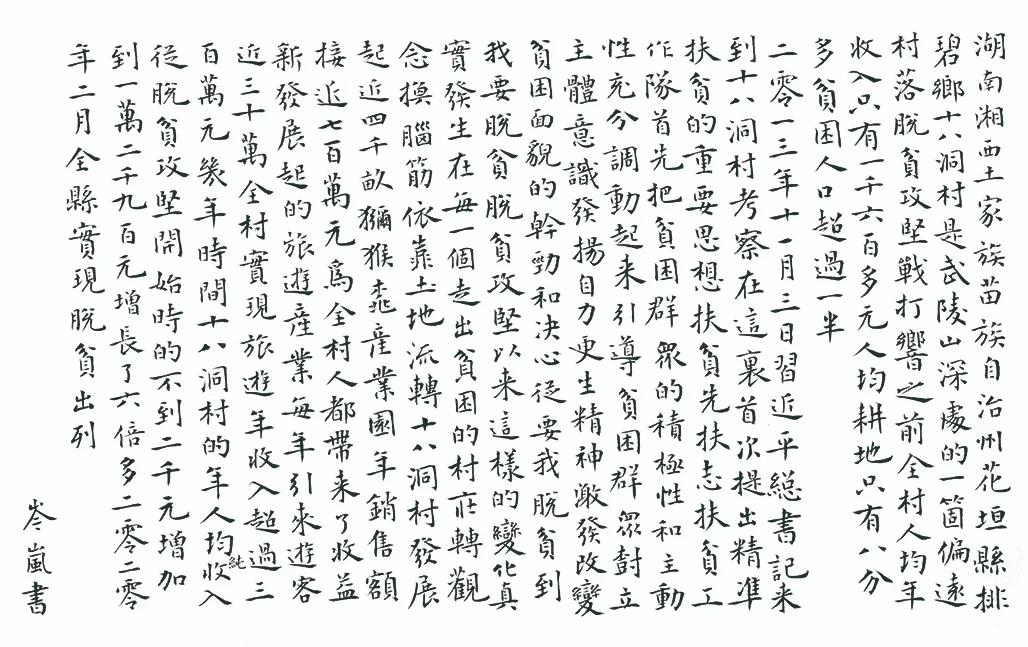 湖南湘西土家族苗族自治州花垣縣排
碧鄉十八洞村是武陵山深處的一箇偏遠
村落脫貧攻堅戰打響之前全村人均年
收入只有一千六百多元人均耕地只有八分
多貧困人口超過一半
二零一三年十一月三日習近平總書記来
到十八洞村考察在這裏首次提出精準
扶貧的重要思想扶貧先扶志扶貧工
作隊首先把貧困群眾的積極性和主動
性充分調動起来引導貧困群眾樹立
主體意識發揚自力更生精神激發改變
貧困面貌的幹勁和决心從要我脫貧到
我要脫貧脫貧攻堅以来這樣的變化真
實發生在每一個走出貧困的村莊轉觀
念換腦筋依靠土地流轉十八洞村發展
起近四千畝獼猴桃産業園年銷售額
接近七百萬元爲全村人都帶来了收益
新發展起的旅遊産業每年引來遊客
近三十萬全村實現旅遊年收入超過三
百萬元幾年時間十八洞村的年人均純收入
從脫貧攻堅開始時的不到二千元增加
到一萬二千九百元增長了六倍多二零二零
年二月全縣實現脫貧出列
岑嵐書